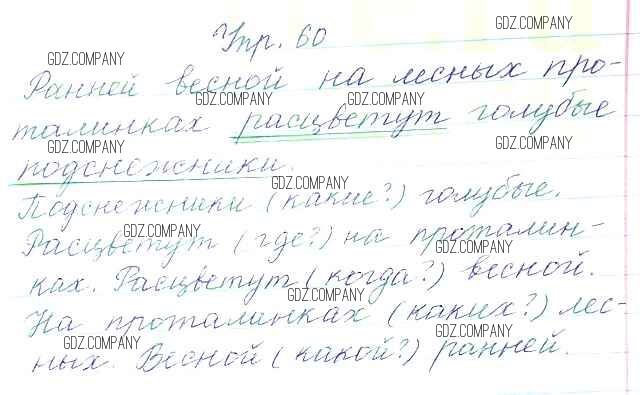 GDZ.COMPANY
Упр. 60
GDZ.COMPANY
Ранней весной на лесных про-
GDZ.COMPANY GDZ.COMPANY
талинках расцветут голубые
GDZ.COMPANY GDZ.COMPANY
подснежники.
GDZ.COMPANY
Подснежники (какие?) голубые.
GDZ.COMPANY
Расцветут (где?) на проталин-
GDZ.COMPANY
ках. Расцветут (когда?) весной.
GDZ.COMPANY
На проталинках (каких?) лес-
GDZ.COMPANY GDZ.COMPANY
ных. Весной (какой?) ранней.